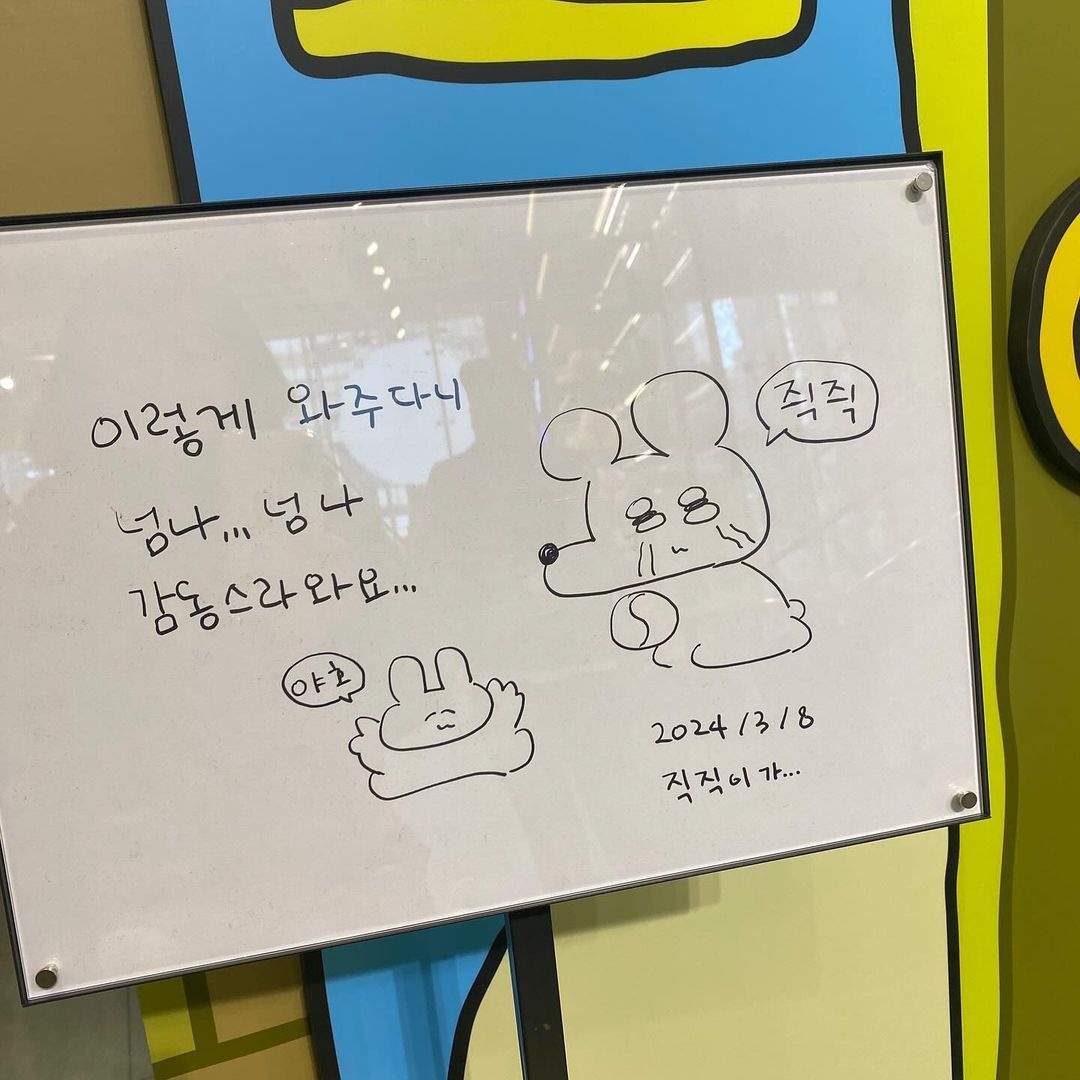 이렇게 와주다니
넘나... 넘나
감동스라와요...
직직
야호
2024/3/8
직직이가...